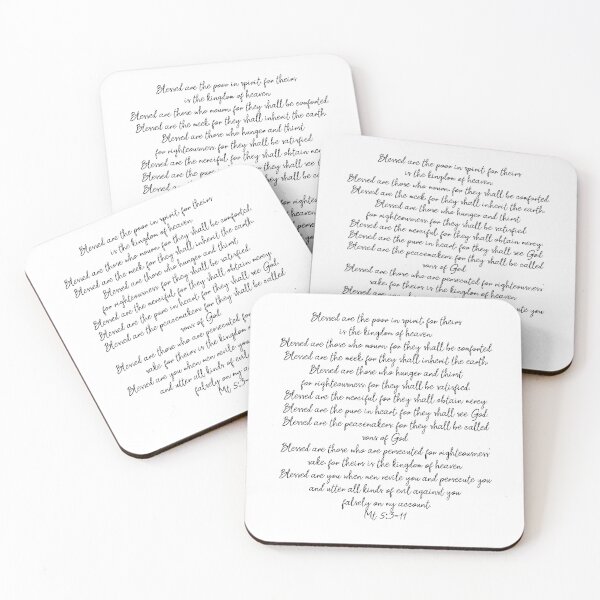 Blessed are the poor in spirit, for theirs
is the kingdom of heaven
Blessed are those who mourn for they shall be comforted
Blessed are the meek for they shall inherit the earth
Blessed are those who hunger and thirst
for righteousness for they shall be satisfied
Blessed are the merciful for they shall obtain
Blessed are the pure in heart for they shall see
Blessed
Blessed are the poor in spirit, for theirs
is the kingdom of heaven
Blessed are those who mourn for they shall be comforted
Blessed are the meek for they shall inherit the earth
Blessed are those who hunger and thirst
for righteousness for they shall be satisfied
Blessed are the merciful for they shall obtain mercy
Blessed are the pure in heart for they shall see God
Blessed are the peacemakers for they shall be called
sons of God
Blessed are those who are persecuted for righteousness
sake for theirs is the kingdom of heaven
Blessed are you
Blessed are the poor in spirit, for theirs
is the kingdom of heaven
Blessed are those who mourn for they shall be comforted
Blessed are the meek for they shall inherit the earth
Blessed are those who hunger and thirst
for righteousness for they shall be satisfied
Blessed are the merciful for they shall obtain mercy
Blessed are the pure in heart for they shall see God
Blessed are the peacemakers for they shall be called
sons of God
Blessed are those who are persecuted for
sake for theirs is the kingdom
Blessed are you when men revile you
and utter all kinds of
falsely on my
Mt, 5:3-
Blessed are the poor in spirit, for theirs
is the kingdom of heaven
Blessed are those who mourn for they shall be comforted
Blessed are the meek for they shall inherit the earth
Blessed are those who hunger and thirst
for righteousness for they shall be satisfied
Blessed are the merciful for they shall obtain mercy
Blessed are the pure in heart for they shall see God
Blessed are the peacemakers for they shall be called
sons of God
Blessed are those who are persecuted for righteousness
sake for theirs is the kingdom of heaven
Blessed are you when men revile you and persecute you
and utter all kinds of evil against you
falsely on my account.
Mt, 5:3-11